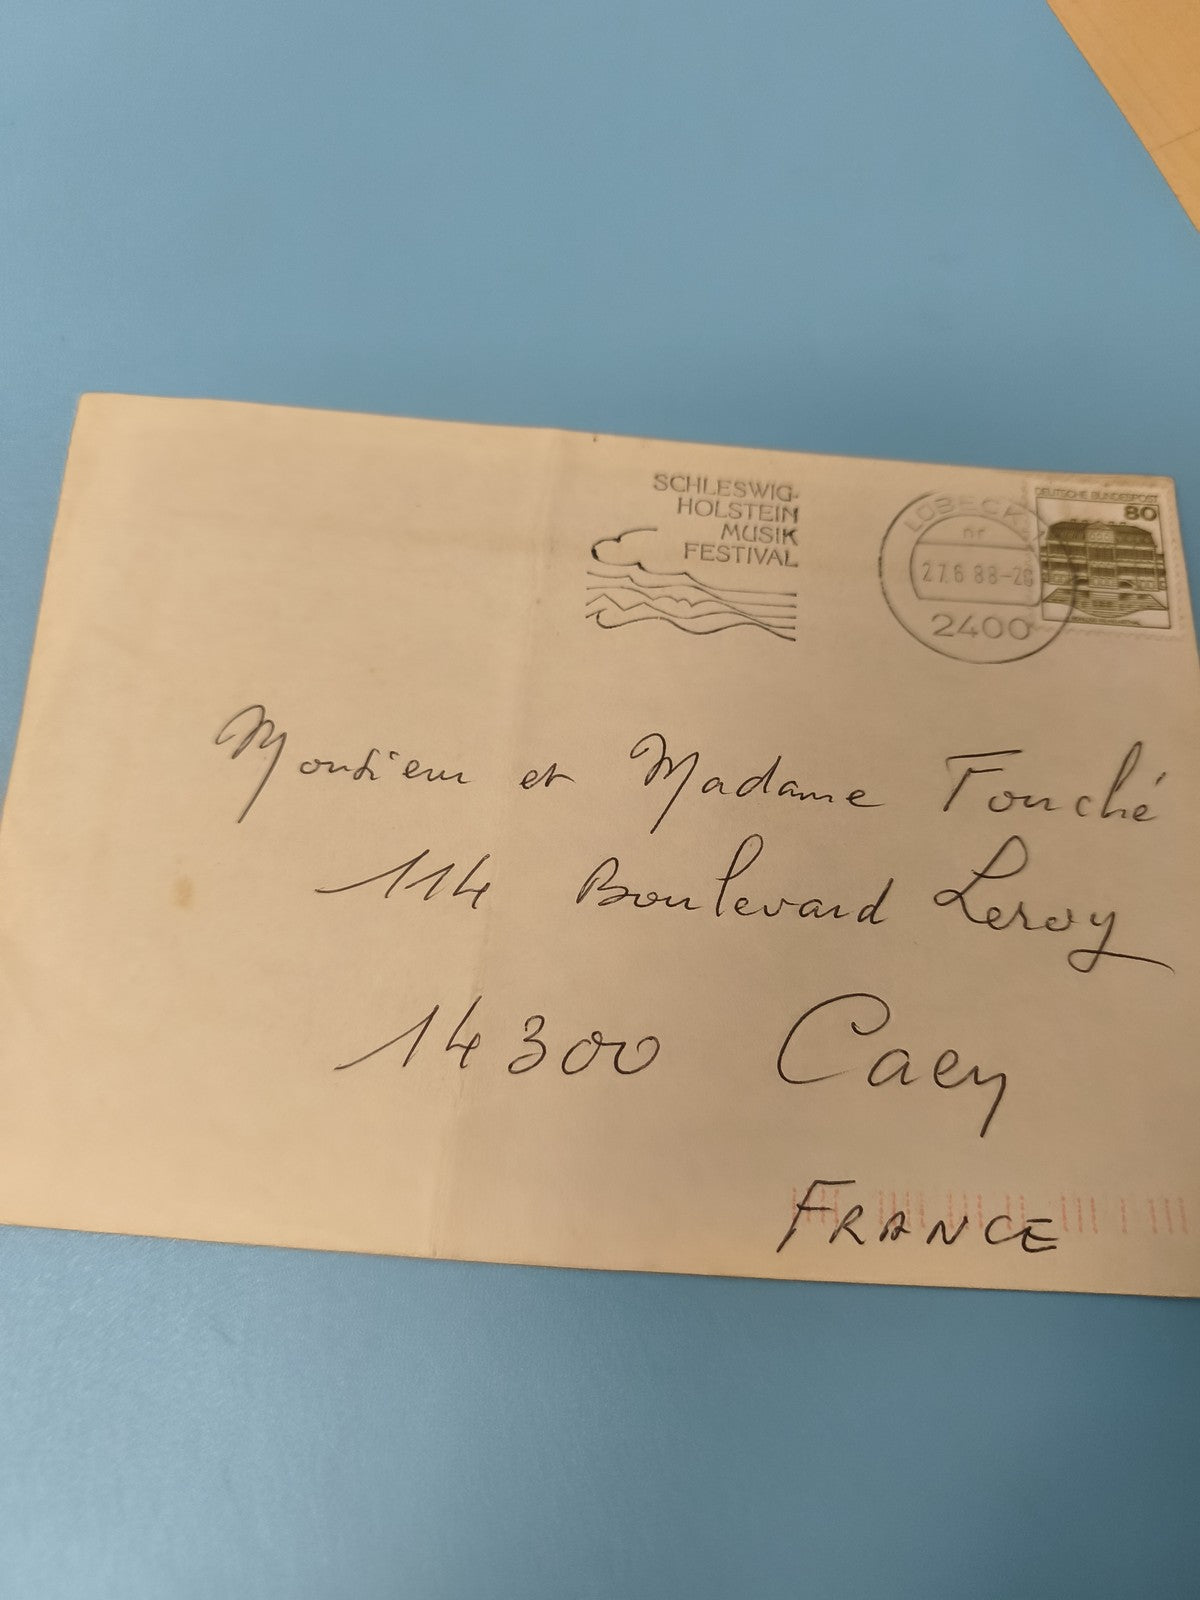 SCHLESWIG-
HOLSTEIN
MUSIK
FESTIVAL
LÜBECK
27.6.88-20
2400
DEUTSCHE BUNDESPOST
80
Monsieur et Madame Fouché
114 Boulevard Leroy
14300 Caen
FRANCE